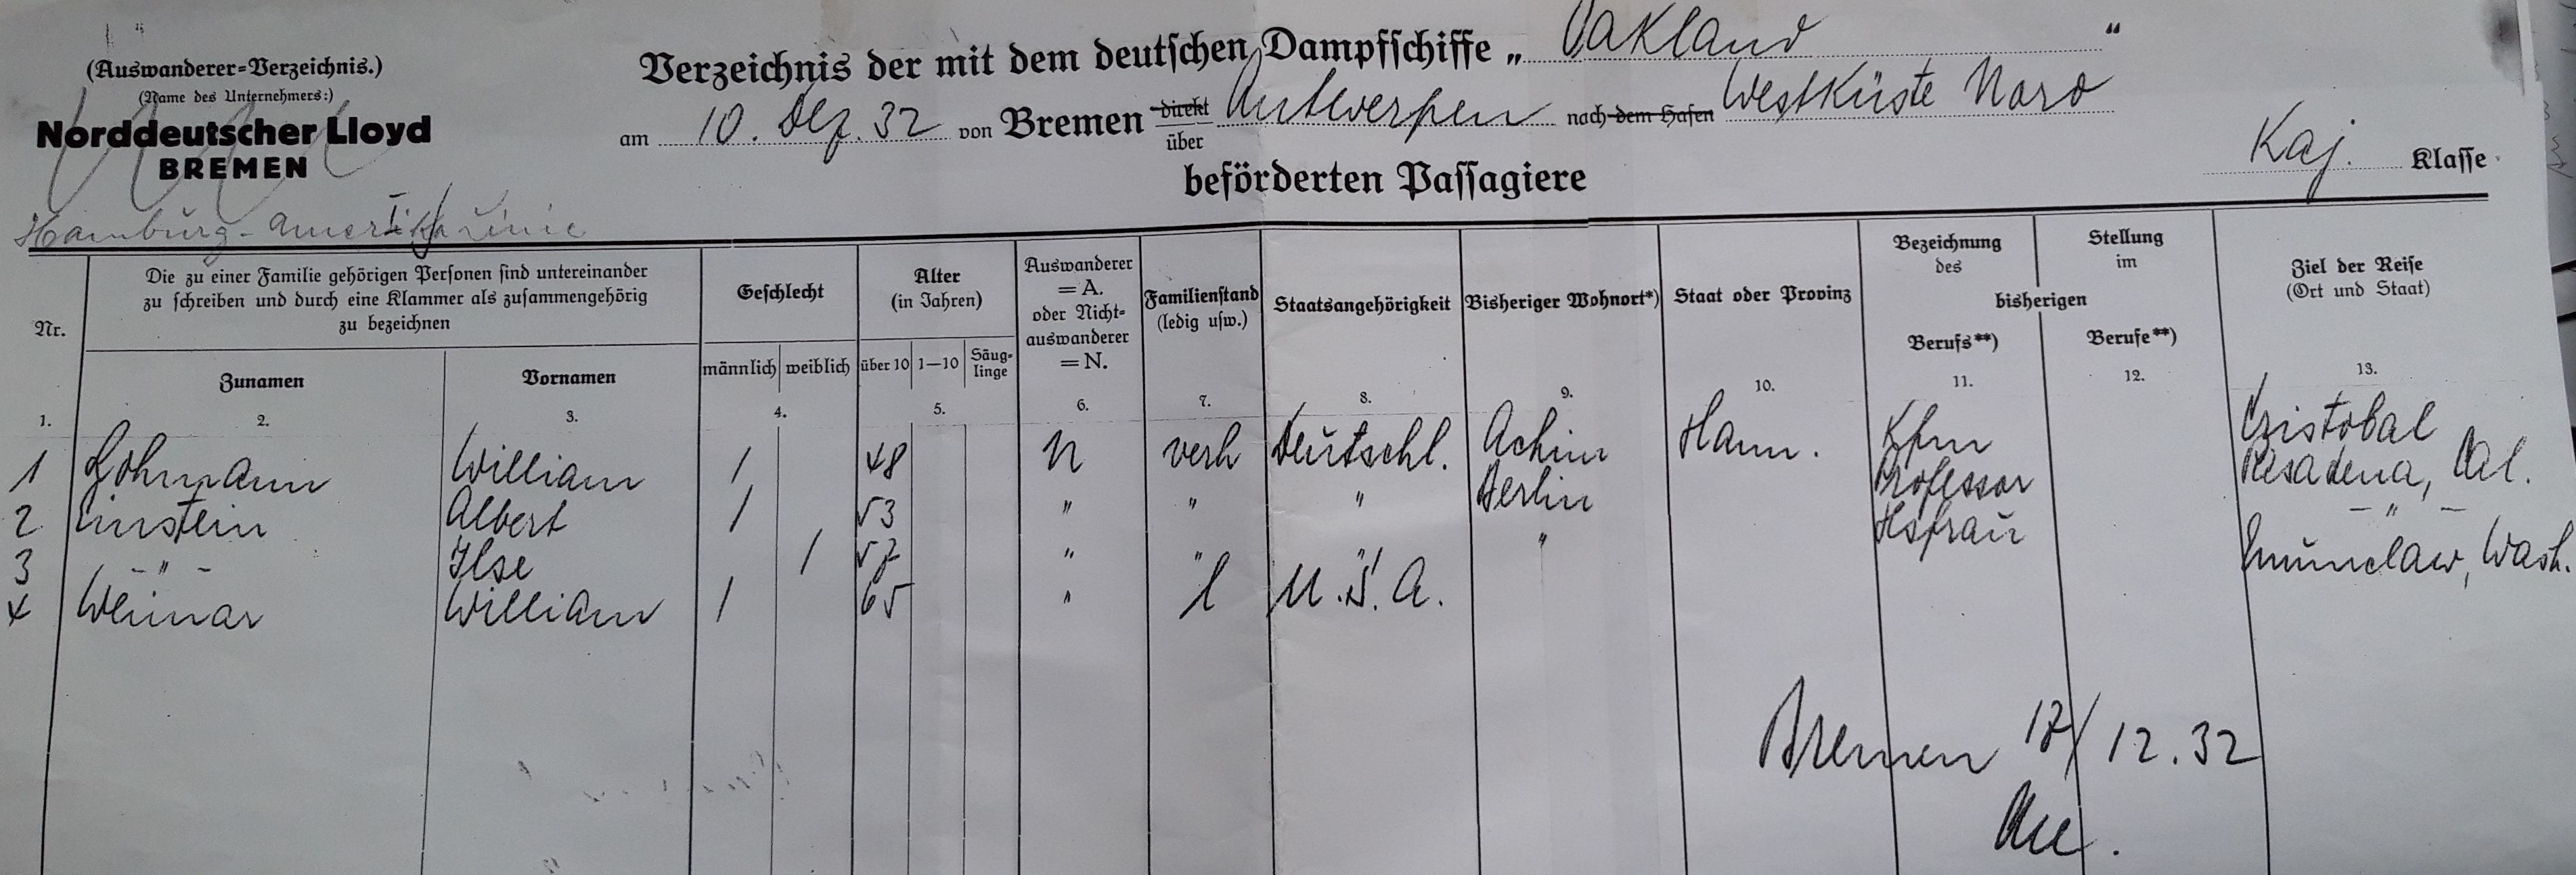 (Auswanderer=Verzeichnis.)
(Name des Unternehmers:)
Norddeutscher Lloyd
BREMEN
Hamburg-Amerika Linie
Verzeichnis der mit dem deutschen Dampfschiffe „ Oakland “
am 10. Dez. 32 von Bremen direkt über Antwerpen nach dem Hafen Westküste Nord
beförderten Passagiere
Kaj. Klasse
Nr.
Die zu einer Familie gehörigen Personen sind untereinander
zu schreiben und durch eine Klammer als zusammengehörig
zu bezeichnen
Zunamen Vornamen
Geschlecht
männlich weiblich
Alter
(in Jahren)
über 10 1—10 Säug-
linge
Auswanderer
= A.
oder Nicht=
auswanderer
= N.
Familienstand
(ledig usw.)
Staatsangehörigkeit
Bisheriger Wohnort*)
Staat oder Provinz
Bezeichnung
des
Stellung
im
bisherigen
Berufs**) Berufe**)
Ziel der Reise
(Ort und Staat)
1. 2. 3. 4. 5. 6. 7. 8. 9. 10. 11. 12. 13.
1 Lohmann William / 48 N verh Deutschl. Achim Hann. Kfm Cristobal
2 Einstein Albert / 53 " " " Berlin Professor Pasadena, Cal.
3 - " - Ilse / 57 " " " " Hsfrau - " -
4 Weimar William / 65 " l U.S.A. Enumclaw, Wash.
Bremen 17/12.32